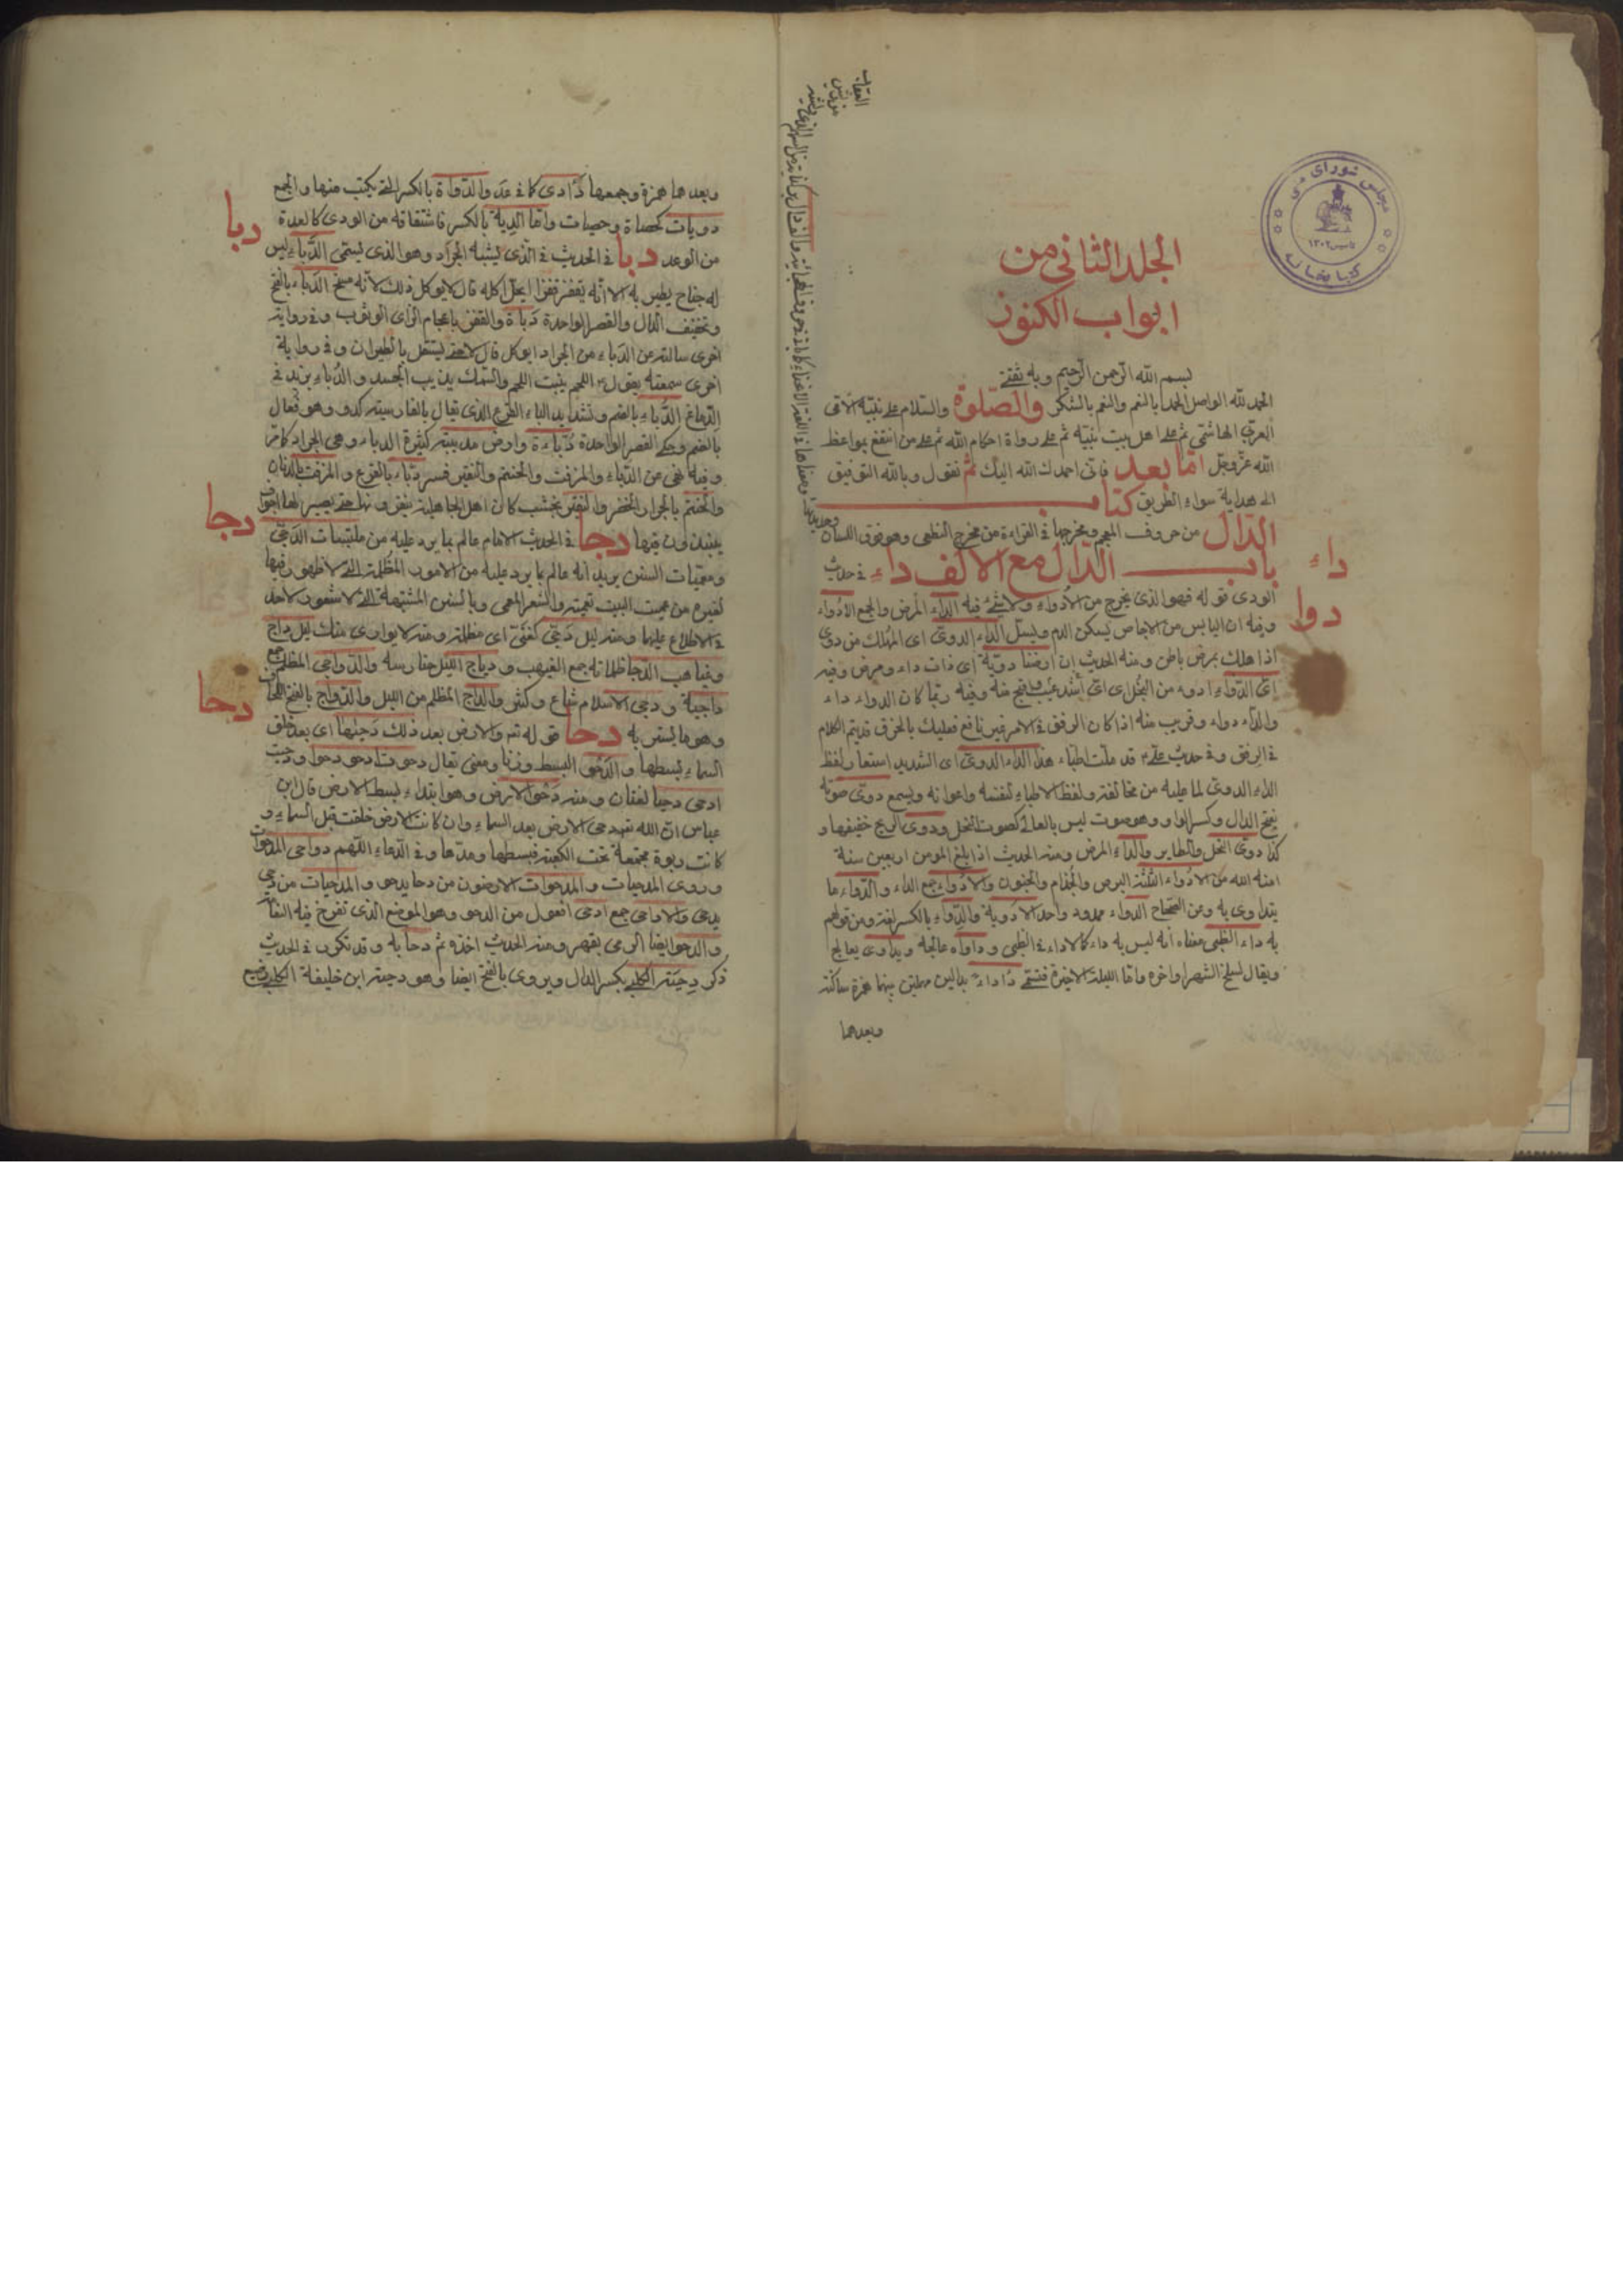 الجلد الثانی من
ابواب الکنوز
بسم الله الرحمن الرحیم وبه ثقتی
الحمد لله الواصل الحمد بالنعم والنعم بالشکر والصلوة والسلام علی نبیه الامی
العربی الهاشمی ثم علی اهل بیت نبیه ثم علی رواة احکام الله ثم علی من انتفع بمواعظ
الله عز وجل اما بعد فانی احمدک الله الیک ثم نقول وبالله التوفیق
الی هدایة سواء الطریق کتاب
الدال من حروف المعجم ومخرجها فی القراءة من مخرج النطعی وهو فوق اللسان
باب الدال مع الالف داء فی حدیث
داء
الودی قوله فهو الذی یخرج من الأدواء ولا شئ فیه الداء المرض والجمع الأدواء
دوا
وفیه ان الیابس من الاجاص یسکن الدم ویسل الداء الدوی ای المهلک من دوی
اذا هلک بمرض باطن ومنه الحدیث ان ارضنا دویة ای ذات داء ومرض وفیه
ای الداء ادوء من البخل ای ای اشد عیب واقبح منه وفیه ربما کان الدواء داء
والداء دواء وقریب منه اذا کان الرفق فی الامر غیر نافع فعلیک بالخرق قدیتم الکلام
فی الرفق وفی حدیث علی قد ملت اطباء هذا الداء الدوی ای الشدید استعار لفظ
الداء الدوی لما علیه من مخالفته ولفظ الاطباء لنفسه واعوانه ویسمع دوی صوته
بفتح الدال وکسر الواو وهو صوت لیس بالعالی کصوت النحل ودوی الریح خفیفها و
کذا دوی النحل والطایر والداء المرض ومنه الحدیث اذا بلغ المومن اربعین سنة
امنه الله من الادواء الثلثة البرص والجذام والجنون والادواء جمع الداء والدواء ما
یتداوی به ومن الصحاح الدواء ممدود واحد الادویة والدواء بالکسر لغة ومن قولهم
به داء الظبی معناه انه لیس به داء کما لا داء فی الظبی وداواه عالجه ویداوی یعالج
ویقال لسلخ الشهر اواخره واما اللیلة الاخیرة فتسمی دأداء بدالین مهملتین بینهما همزة ساکنة
وبعدهما
وبعدهما همزة وجمعها دآدی کما فی عد والدواة بالکسر التی یکتب منها والجمع
دویات کحصاة وحصیات واما الدیة بالکسر فاشتقاقه من الودی کالعدة
من الوعد دبا فی الحدیث فی الذی یشبه الجراد وهو الذی یسمی الدباء لیس
دبا
له جناح یطیر به الا انه یقفز قفزا ایحل اکله قال لا یوکل ذلک لانه مسخ الدباء بالفتح
وتخفیف الدال والقصر الواحدة دباة والقفز باعجام الزای الوثوب وفی روایة
اخری سالته عن الدباء من الجراد ایوکل قال لا حتی یستقل بالطیران وفی روایة
اخری سمعته یقول اللحم ینبت اللحم والسمک یذیب الجسد والدباء یزید فی
الدماغ الدباء بالضم وتشدید الباء القرع الذی یقال بالفارسیة کدو وهو فعال
بالضم وحکی القصر الواحدة دباءة وارض مدبیة کثیرة الدباء وهی الجراد کما مر
وفیه نهی عن الدباء والمزفت والحنتم والنقیر فسر دباء بالقرع والمزفت بالدنان
والحنتم بالجرار الخضر والنقیر بخشب کان اهل الجاهلیة ینقرونها حتی یصیر لها اجواف
ینبذون فیها دجا فی الحدیث الامام عالم بما یرد علیه من ملتبسات الدجی
دجا
ومعمیات السنن یرید انه عالم بما یرد علیه من الامور المظلمة التی لا ظهور فیها
لغیره من عمیت البیت تعمیة والشعر المعمی وبالسنن المشتبهة التی لا شعور لاحد
فی الاطلاع علیها ومنه لیل دجی کغنی ای مظلمة ومنه لا یواری منک لیل داج
وغیاهب الدجا ظلماته جمع الغیهب ودیاج اللیل حنادسه والدواجی المظلمة جمع
داجیة ودجی الاسلام شاع وکثر والداج المظلم من اللیل والدواج بالفتح اللحاف
وهو ما یستر به دحا قوله تعالی والارض بعد ذلک دحیها ای بعد خلق
دحا
السماء بسطها والدحو البسط وزنا ومعنی یقال دحوت ادحو دحوا ودحیت
ادحی دحیا لغتان ومنه دحو الارض وهو ابتداء بسط الارض قال ابن
عباس ان الله تعالی دحی الارض بعد السماء وان کانت الارض خلقت قبل السماء و
کانت ربوة مجتمعة تحت الکعبة فبسطها ومدها وفی الدعاء اللهم دواحی المدحوات
وروی المدحیات والمدحوات الارضون من دحا یدحو والمدحیات من دحی
یدحی والاداحی جمع ادحی افعول من الدحو وهو الموضع الذی تفرخ فیه النعام
والدحو ایضا الرمی بقهر ومنه الحدیث اخذه ثم دحا به وقد تکرر فی الحدیث
ذکر دحیة الکلبی بکسر الدال ویروی بالفتح ایضا وهو دحیة ابن خلیفة الکلبی رضیع
مجلس شورای ملی
تاسیس ۱۳۰۲
کتابخانه